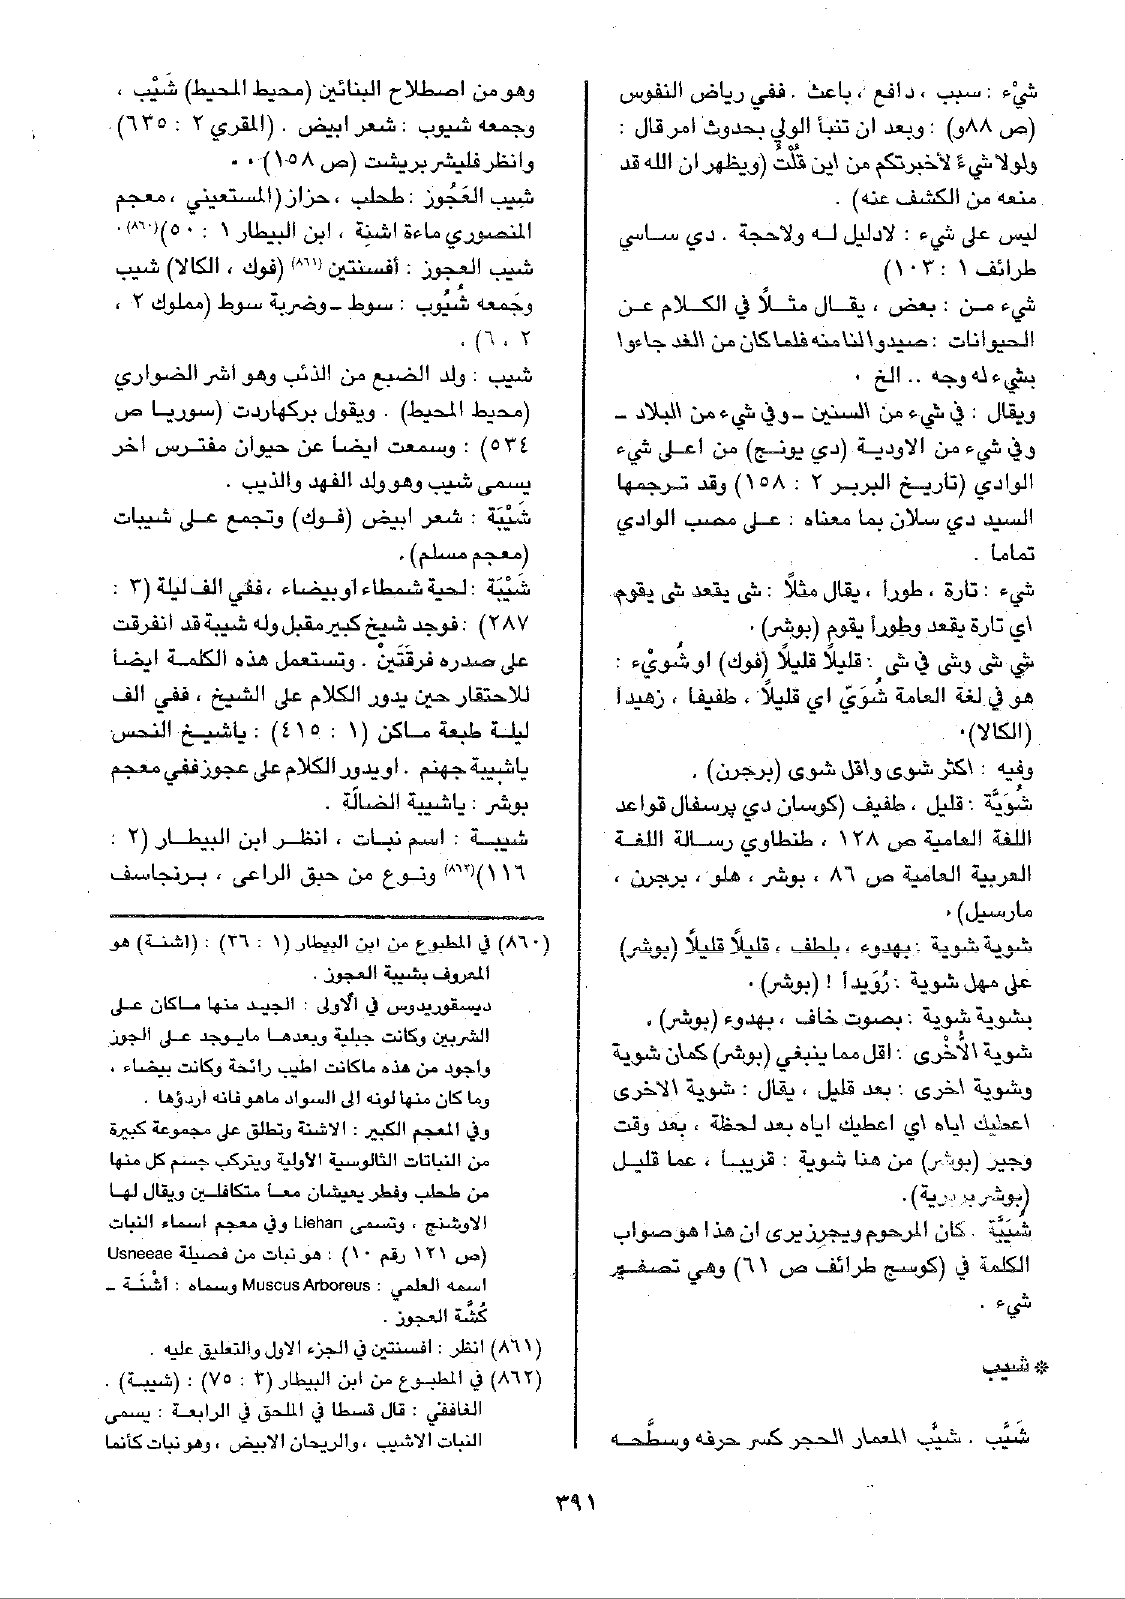 شيْء : سبب ، دافع ، باعث . ففي رياض النفوس
(ص ٨٨و) : وبعد ان تنبأ الولي بحدوث امر قال :
ولولا شيءً لأخبرتكم من اين قُلْتُ (ويظهر ان الله قد
منعه من الكشف عنه) .
ليس على شيء : لادليل له ولاحجة . دي ساسي
طرائف ١ : ١٠٣)
شيء من : بعض ، يقال مثلاً في الكلام عن
الحيوانات : صيدوا لنا منه فلما كان من الغد جاءوا
بشيء له وجه .. الخ .
ويقال : في شيء من السنين - وفي شيء من البلاد -
وفي شيء من الاودية (دي يونج) من اعلى شيء
الوادي (تاريخ البربر ٢ : ١٥٨) وقد ترجمها
السيد دي سلان بما معناه : على مصب الوادي
تماما .
شيء : تارة ، طوراً ، يقال مثلاً : شى يقعد شى يقوم
اي تارة يقعد وطوراً يقوم (بوشر) .
شي شى وشى في شى : قليلاً قليلاً (فوك) او شُويْء :
هو في لغة العامة شُوَيّ اي قليلاً ، طفيفا ، زهيداً
(الكالا) .
وفيه : اكثر شوى واقل شوى (برجرن) .
شُوَيَّة : قليل ، طفيف (كوسان دي پرسفال قواعد
اللغة العامية ص ١٢٨ ، طنطاوي رسالة اللغة
العربية العامية ص ٨٦ ، بوشر ، هلو ، برجرن ،
مارسيل) .
شوية شوية : بهدوء ، بلطف ، قليلاً قليلاً (بوشر)
على مهل شوية : رُوَيداً ! (بوشر) .
بشوية شوية : بصوت خاف ، بهدوء (بوشر) .
شوية الأُخْرى : اقل مما ينبغي (بوشر) كمان شوية
وشوية اخرى : بعد قليل ، يقال : شوية الاخرى
اعطيك اياه اي اعطيك اياه بعد لحظة ، بعد وقت
وجيز (بوشر) من هنا شوية : قريباً ، عما قليل
(بوشر بربرية) .
شُيَيَّة . كان المرحوم ويجرز يرى ان هذا هو صواب
الكلمة في (كوسج طرائف ص ٦١) وهي تصغير
شيء .
* شيب
شَيَّب . شيَّب المعمار الحجر كسر حرفه وسطَّحه
وهو من اصطلاح البنائين (محيط المحيط) شَيْب ،
وجمعه شيوب : شعر ابيض . (المقري ٢ : ٦٣٥)
وانظر فليشر بريشت (ص ١٥٨) . .
شيب العَجُوز : طحلب ، حزاز (المستعيني ، معجم
المنصوري مادة اشنة ، ابن البيطار ١ : ٥٠)(٨٦٠) .
شيب العجوز : أفسنتين (٨٦١) (فوك ، الكالا) شيب
وجَمعه شُيُوب : سوط - وضربة سوط (مملوك ٢ ،
٢ ، ٦) .
شيب : ولد الضبع من الذئب وهو اشر الضواري
(محيط المحيط) . ويقول بركهاردت (سوريا ص
٥٣٤) : وسمعت ايضاً عن حيوان مفترس اخر
يسمى شيب وهو ولد الفهد والذيب .
شَيْبَة : شعر ابيض (فوك) وتجمع على شيبات
(معجم مسلم) .
شَيْبَة : لحية شمطاء او بيضاء ، ففي الف ليلة (٣ :
٢٨٧) : فوجد شيخ كبير مقبل وله شيبة قد انفرقت
على صدره فرقَتَينْ . وتستعمل هذه الكلمة ايضاً
للاحتقار حين يدور الكلام على الشيخ ، ففي الف
ليلة طبعة ماكن (١ : ٤١٥) : ياشيخ النحس
ياشيبة جهنم . او يدور الكلام على عجوز ففي معجم
بوشر : ياشيبة الضالّة .
شيبة : اسم نبات ، انظر ابن البيطار (٢ :
١١٦)(٨٦٢) ونوع من حبق الراعى ، برنجاسف
(٨٦٠) في المطبوع من ابن البيطار (١ : ٣٦) : (اشنة) هو
المعروف بشيبة العجوز .
ديسقوريدوس في الأولى : الجيد منها ماكان على
الشربين وكانت جبلية وبعدها مايوجد على الجوز
واجود من هذه ماكانت اطيب رائحة وكانت بيضاء ،
وما كان منها لونه الى السواد ماهو فانه اردؤها .
وفي المعجم الكبير : الاشنة وتطلق على مجموعة كبيرة
من النباتات الثالوسية الأولية ويتركب جسم كل منها
من طحلب وفطر يعيشان معاً متكافلين ويقال لها
الاوشنج ، وتسمى Liehan وفي معجم اسماء النبات
(ص ١٢١ رقم ١٠) : هو نبات من فصيلة Usneeae
اسمه العلمي : Muscus Arboreus وسماه : أشْنَة -
كُشَّة العجوز .
(٨٦١) انظر : افسنتين في الجزء الاول والتعليق عليه .
(٨٦٢) في المطبوع من ابن البيطار (٣ : ٧٥) : (شيبة) .
الغافقي : قال قسطا في الملحق في الرابعة : يسمى
النبات الاشيب ، والريحان الابيض ، وهو نبات كأنما
٣٩١